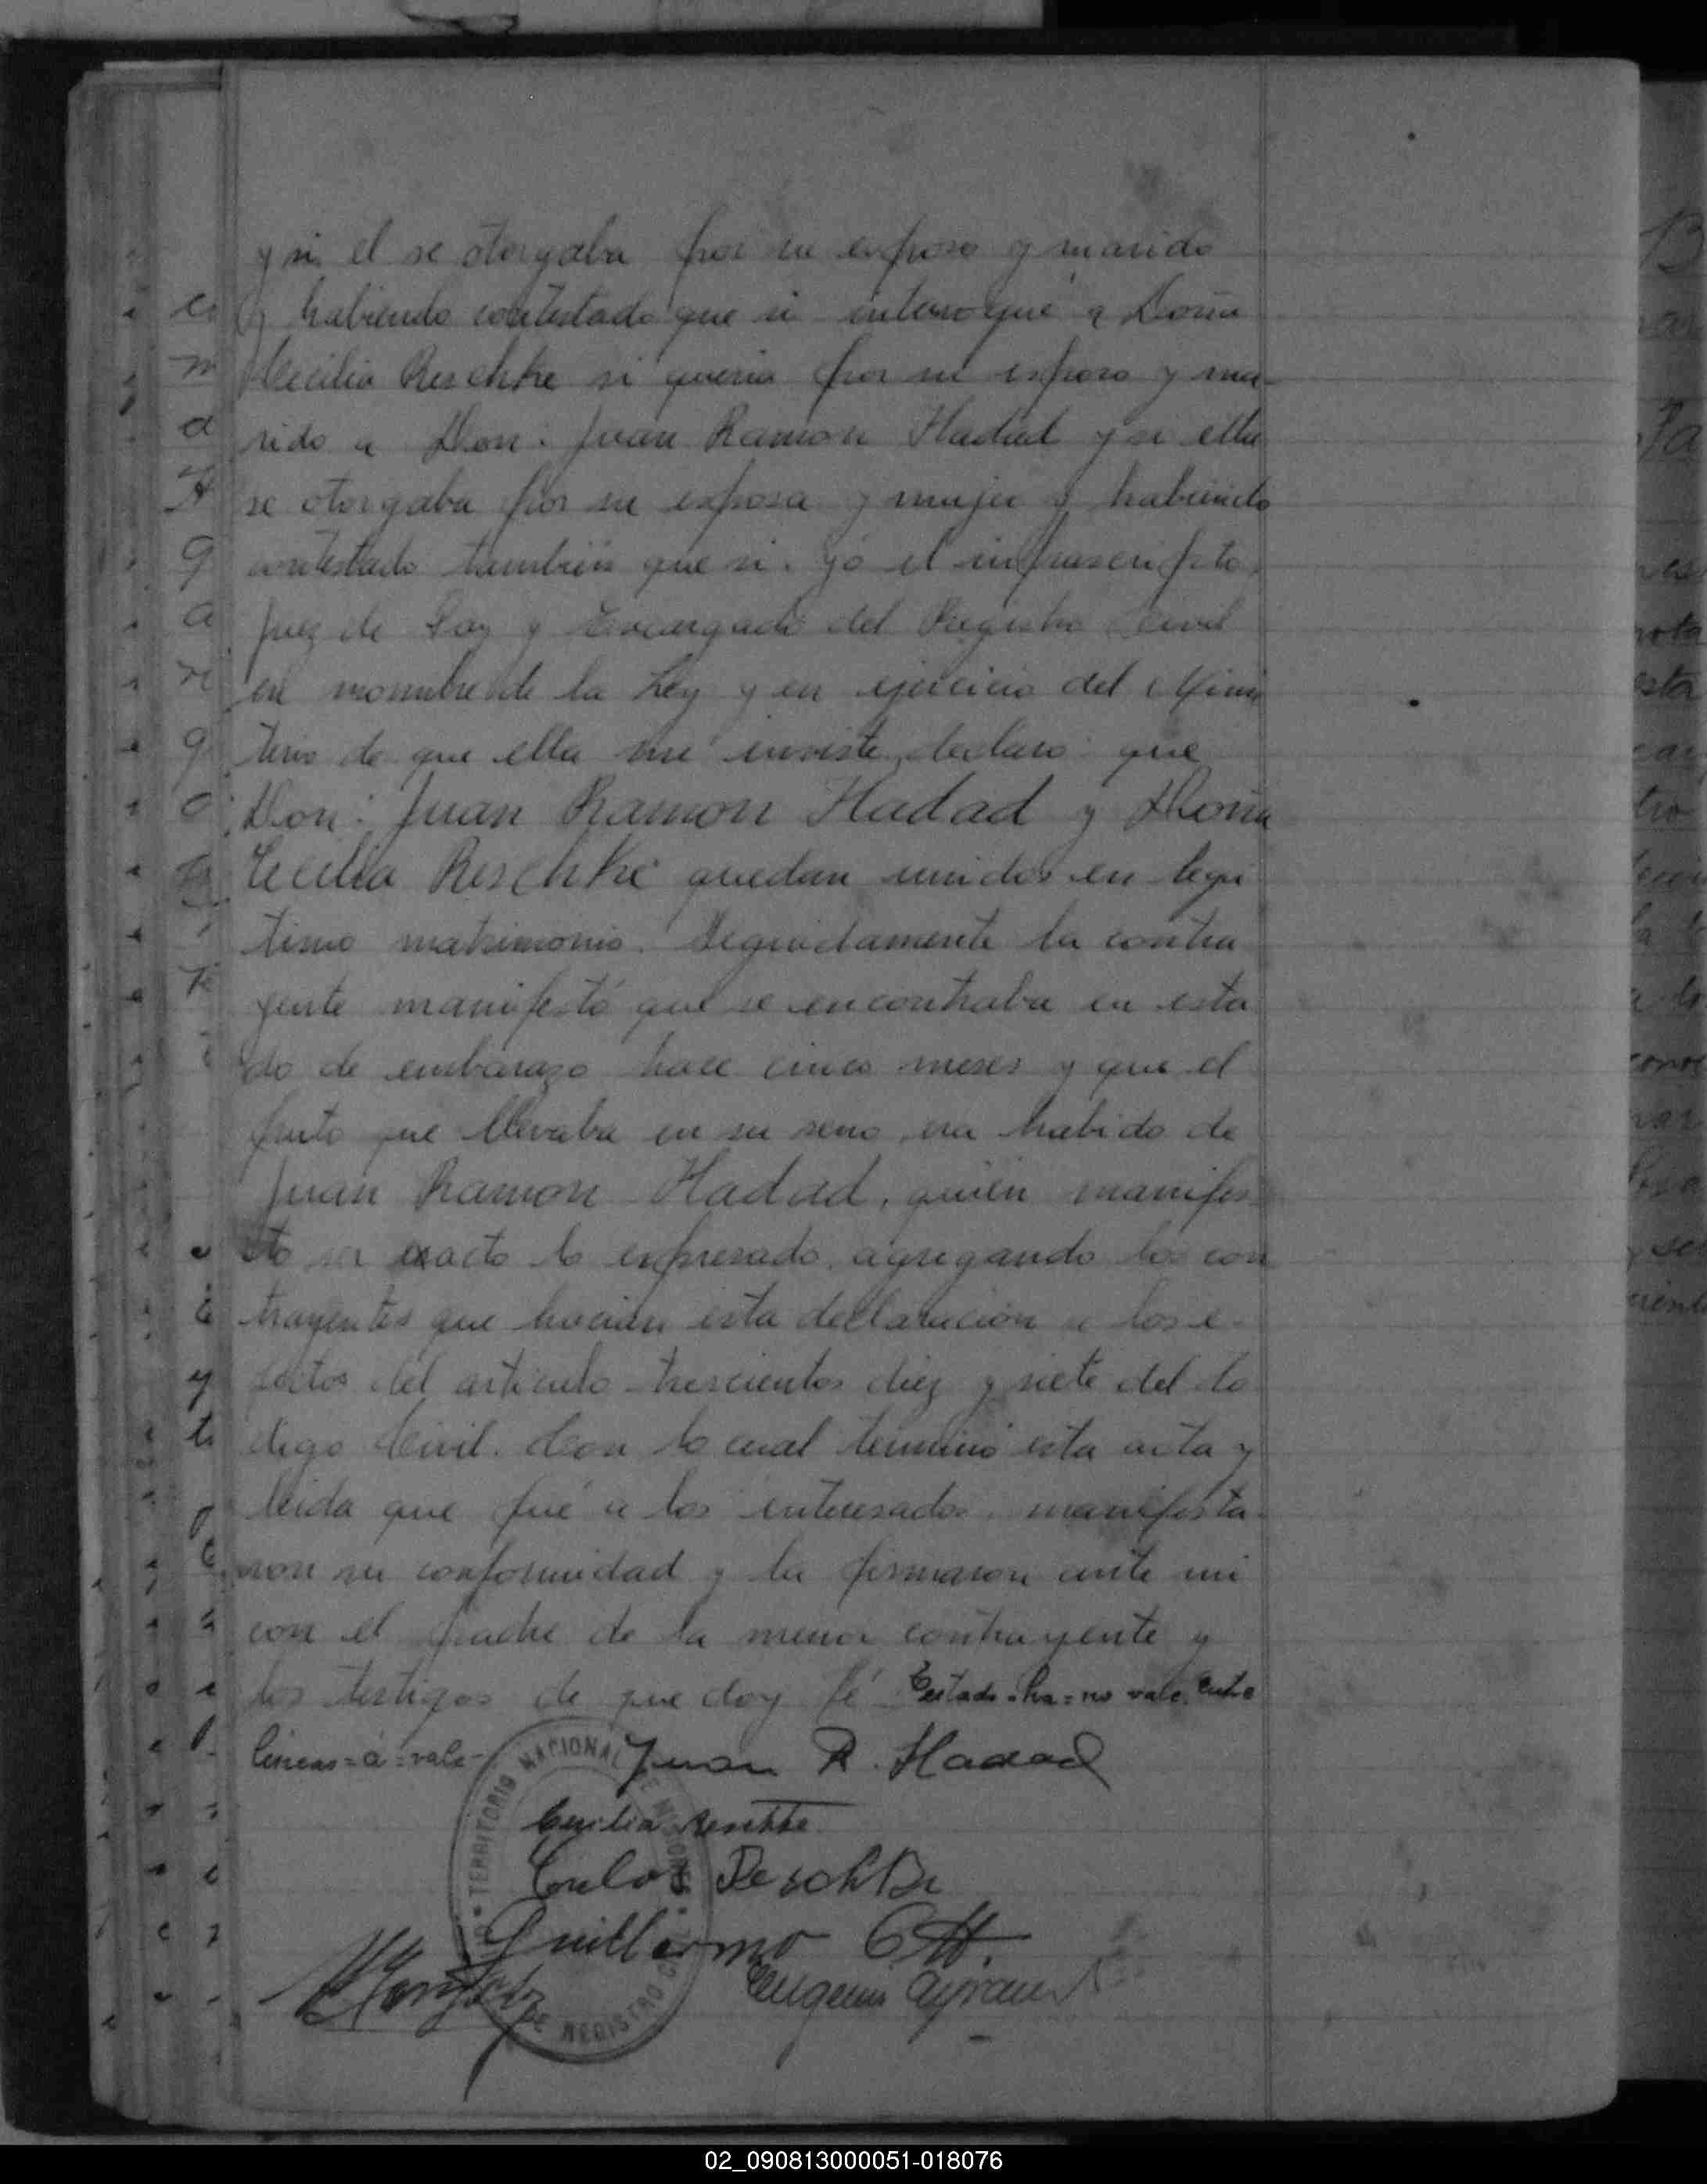 y si el se otorgaba por su esposo y marido
y habiendo contestado que si interrogué a Doña
Cecilia Reschke si queria por su esposo y ma-
rido a Don: Juan Ramon Hadad y si ella
se otorgaba por su esposa y mujer y habiendo
contestado también que si. yo el infrascripto
Juez de Paz y Encargado del Registro Civil
en nombre de la Ley y en ejercicio del Minis
terio de que ella me inviste, declaro: que
Don: Juan Ramon Hadad y Doña
Cecilia Reschke quedan unidos en legi
timo matrimonio. Seguidamente la contra
yente manifestó que se encontraba en esta
do de embarazo hace cinco meses y que el
fruto que llevaba en su seno era habido de
Juan Ramon Hadad, quién manifes-
to ser exacto lo expresado, agregando los con
trayentes que hacian esta declaración a los e-
fectos del articulo trescientos diez y siete del Co
digo Civil. Con lo cual terminó esta acta y
leida que fué a los interesados, manifesta-
ron su conformidad y la firmaron ante mi
con el padre de la menor contrayente y
los testigos de que doy fé Testado=ha=no vale. Entre
lineas=a=vale-
Juan R. Hadad
Cecilia Reschke
Carlos Reschke
Guillermo Ott.
Eugenio
TERRITORIO NACIONAL DE MISIONES
DE REGISTRO
02_090813000051-018076